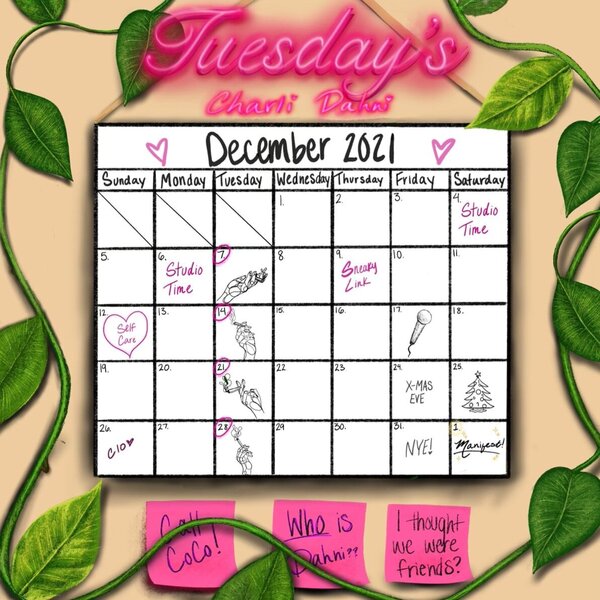 Tuesday's
Charli Dahni
December 2021
Sunday Monday Tuesday Wednesday Thursday Friday Saturday
1. 2. 3. 4.
Studio
Time
5. 6. 7. 8 9. 10. 11.
Studio
Time
Sneaky
Link
12. 13. 14. 15. 16. 17. 18.
Self
Care
19. 20. 21. 22. 23. 24. 25.
X-MAS
EVE
26. 27. 28. 29. 30. 31. 1.
NYE!
Manifest!
Call
CoCo!
Who is
Dahni??
I thought
we were
friends?